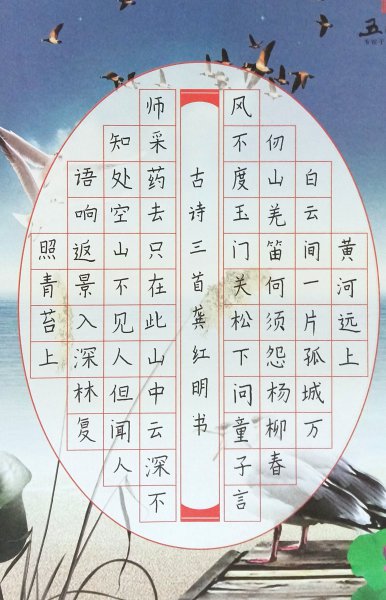 五
黄河远上
白云间一片孤城万
仞山羌笛何须怨杨柳春
风不度玉门关松下问童子言
古诗三首龚红明书
师采药去只在此山中云深不
知处空山不见人但闻人
语响返景入深林复
照青苔上